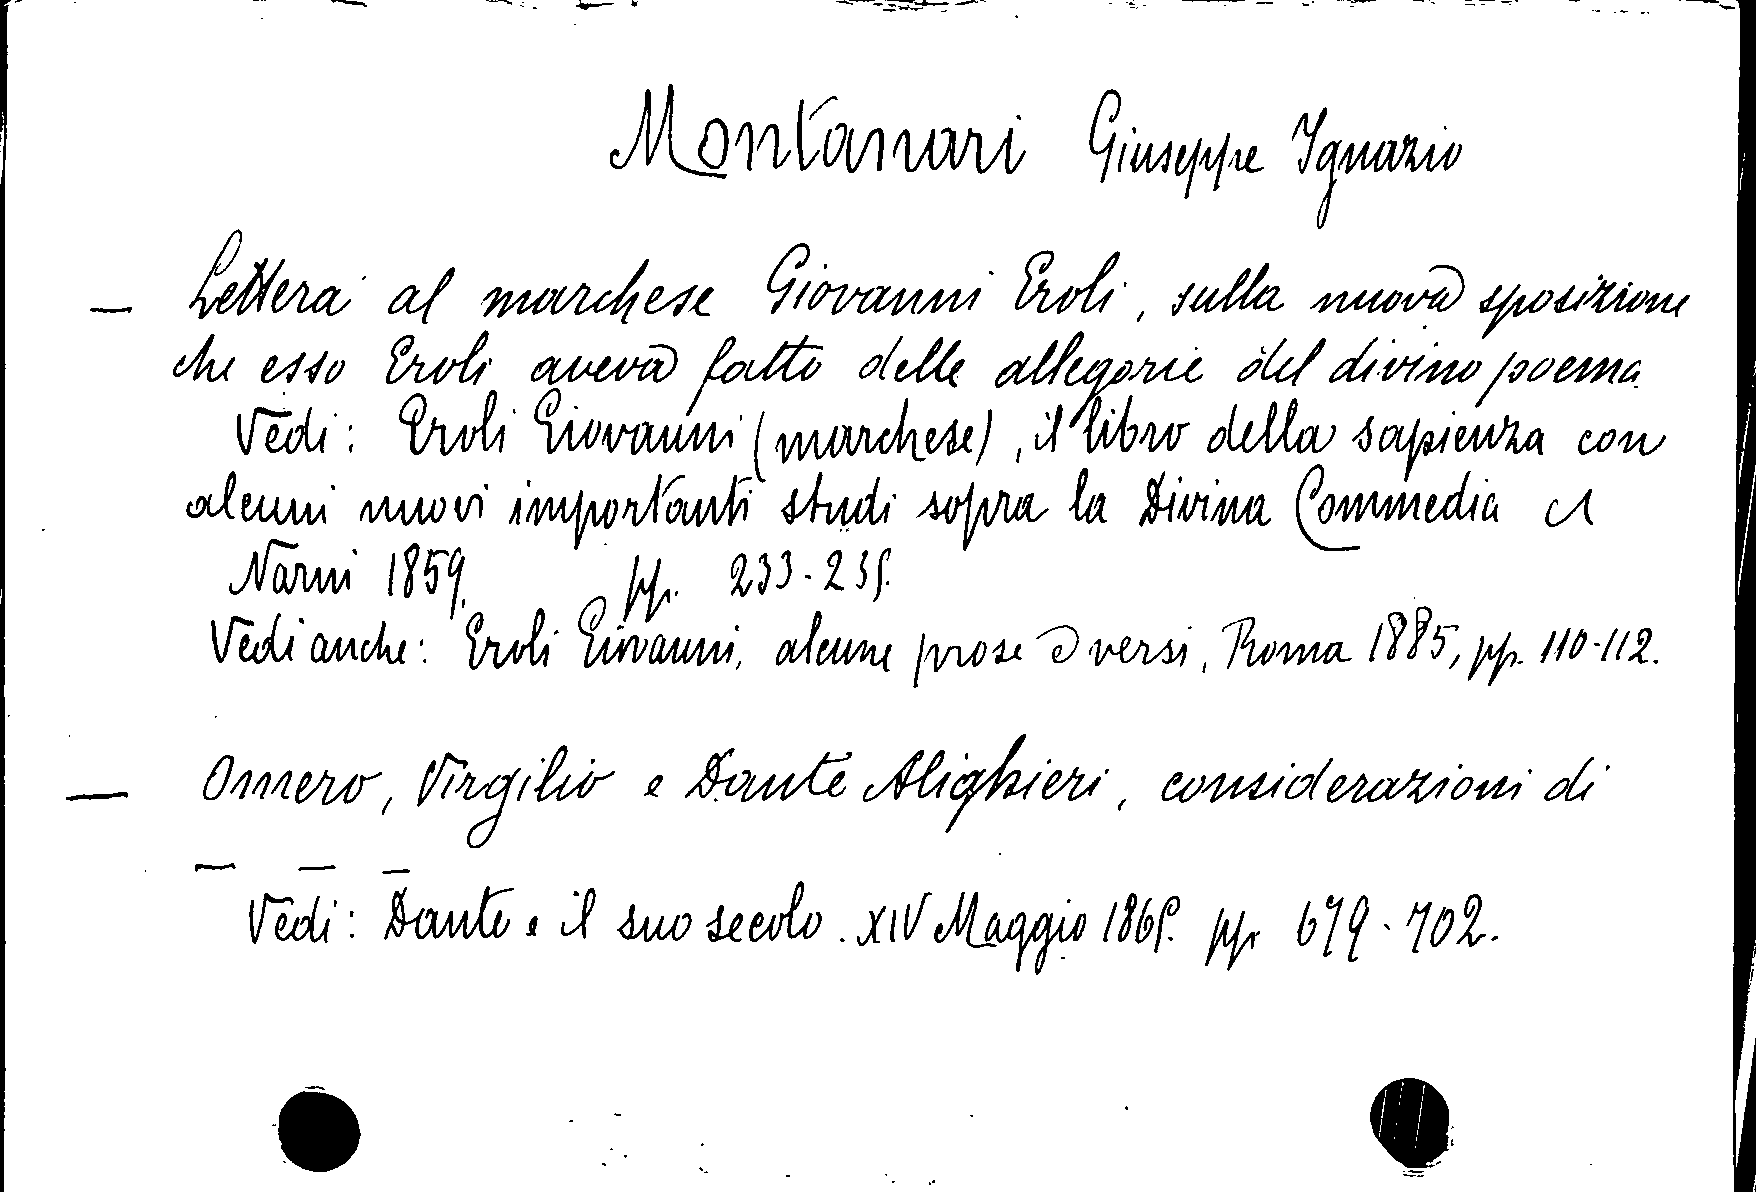 Montanari Giuseppe Ignazio
— Lettera al marchese Giovanni Eroli, sulla nuova sposizione
che esso Eroli aveva fatto delle allegorie del divino poema.
Vedi: Eroli Giovanni (marchese), il libro della sapienza con
alcuni nuovi importanti studi sopra la Divina Commedia
Narni 1859. pp. 233-235.
Vedi anche: Eroli Giovanni, alcune prose e versi, Roma 1885, pp. 110-112.
— Omero, Virgilio e Dante Alighieri, considerazioni di
— — —
Vedi: Dante e il suo secolo. XIV Maggio 1865. pp. 679-702.